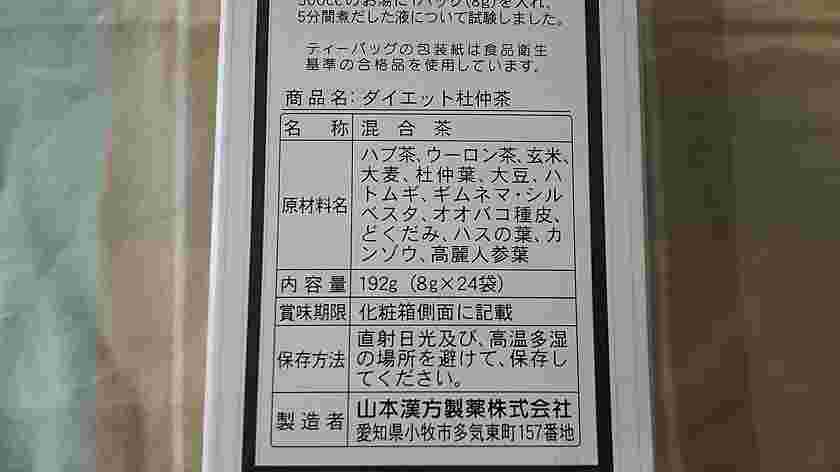 500ccのお湯に1パック(8g)を入れ、
5分間煮だした液について試験しました。
ティーバッグの包装紙は食品衛生
基準の合格品を使用しています。
商品名:ダイエット杜仲茶
名 称 混合茶
原材料名 ハブ茶、ウーロン茶、玄米、
大麦、杜仲葉、大豆、ハ
トムギ、ギムネマ・シル
ベスタ、オオバコ種皮、
どくだみ、ハスの葉、カ
ンゾウ、高麗人参葉
内容量 192g (8g×24袋)
賞味期限 化粧箱側面に記載
保存方法 直射日光及び、高温多湿
の場所を避けて、保存し
てください。
製造者 山本漢方製薬株式会社
愛知県小牧市多気東町157番地